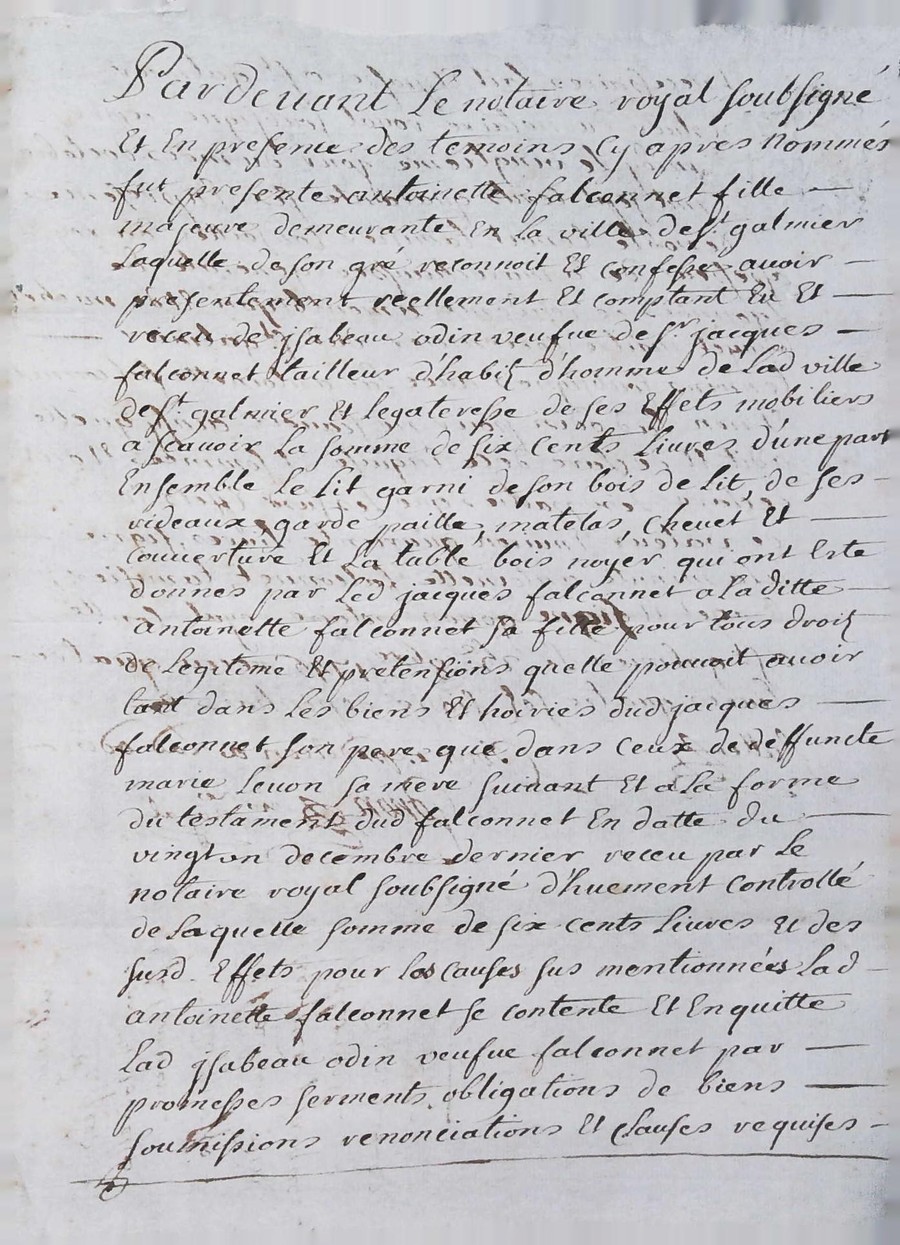 Pardeuant Le notaire royal soubsigné
Et En presence des temoins Cy apres Nommés
fut presente antoinette falconnet fille —
majeure demeurante En La ville de st galmier
Laquelle de son gré reconnoit Et confesse auoir —
presentement reellement Et comptant Eu Et —
receu de jsabeau odin veufue de sr jacques —
falconnet tailleur d'habitz d'hommes de Lad ville
de st galmier Et legateresse de ses Effets mobiliers
a scauoir La somme de six cents Liures d'une part
Ensemble Le Lit garni de son bois de Lit, de ses -
rideaux, garde paille, matelas, cheuet Et —
couuerture Et La table bois noyer qui ont Este
donnes par Led jacques falconnet a La ditte —
antoinette falconnet sa fille pour tous droitz
de Legitime Et pretensiions quelle pouuoit auoir
tant dans Les biens Et hoiries dud jacques —
falconnet son pere que dans Ceux de deffuncte
marie sa mere suiuant Et a La forme
du testament dud falconnet En datte du —
vingt un decembre dernier receu par Le
notaire royal soubsigné d'huement Controllé
de Laquelle somme de six cents Liures Et des
susd. Effets pour Les causes sus mentionnées Lad -
antoinette falconnet se contente Et En quitte
Lad jsabeau odin veufue falconnet par —
promesses serments obligations de biens —
soumissions renonciations Et Clauses requises -